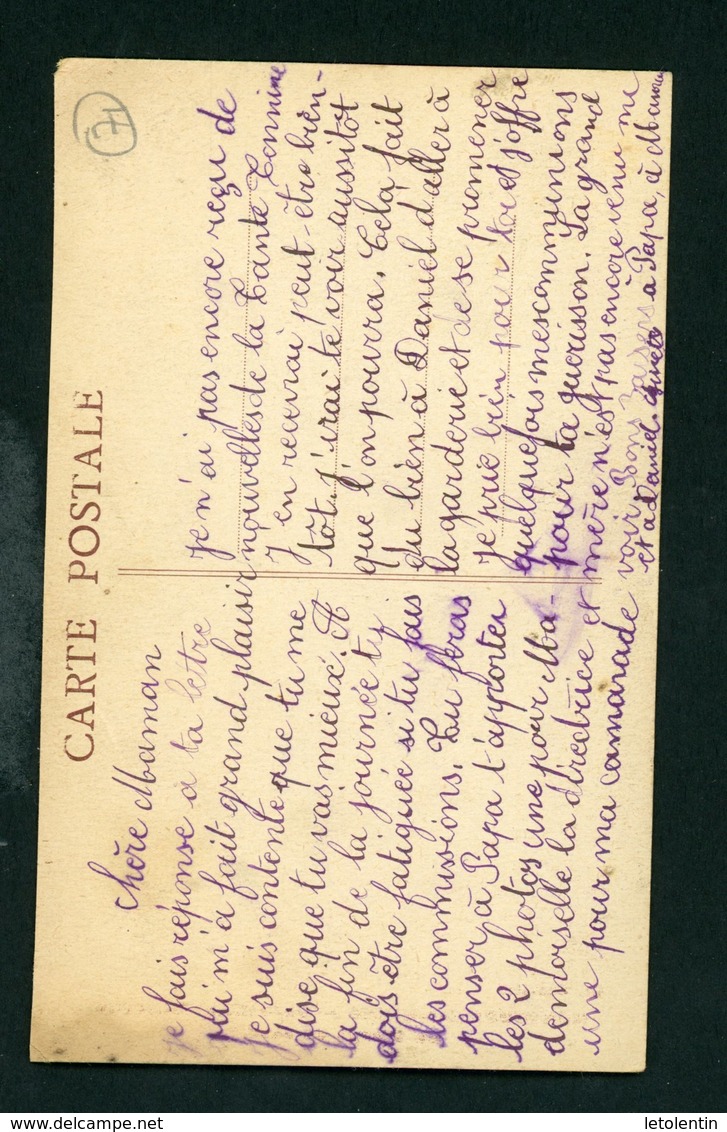 CARTE POSTALE
Chère Maman
je fais réponse à ta lettre
qui m'a fait grand plaisir
je suis contente que tu me
dise que tu vas mieux. A
la fin de la journée tu
dois être fatiguée si tu fais
les commissions. Tu feras
penser à Papa t'apporter
les 2 photos une pour Ma-
demoiselle la directrice et
une pour ma camarade
je n'ai pas encore reçu de
nouvelles de la Tante
J'en recevrai peut-être bien-
tôt. J'irai te voir aussitôt
que l'on pourra. Cela fait
du bien à Daniel d'aller à
la garderie et de se promener
je prie bien pour toi et j'offre
quelquefois mes communions
pour ta guerisson. La grand
mère n'est pas encore venu me
voir. Bons Baisers à Papa, à Maman
et à Daniel.
delcampe.net
letolentin